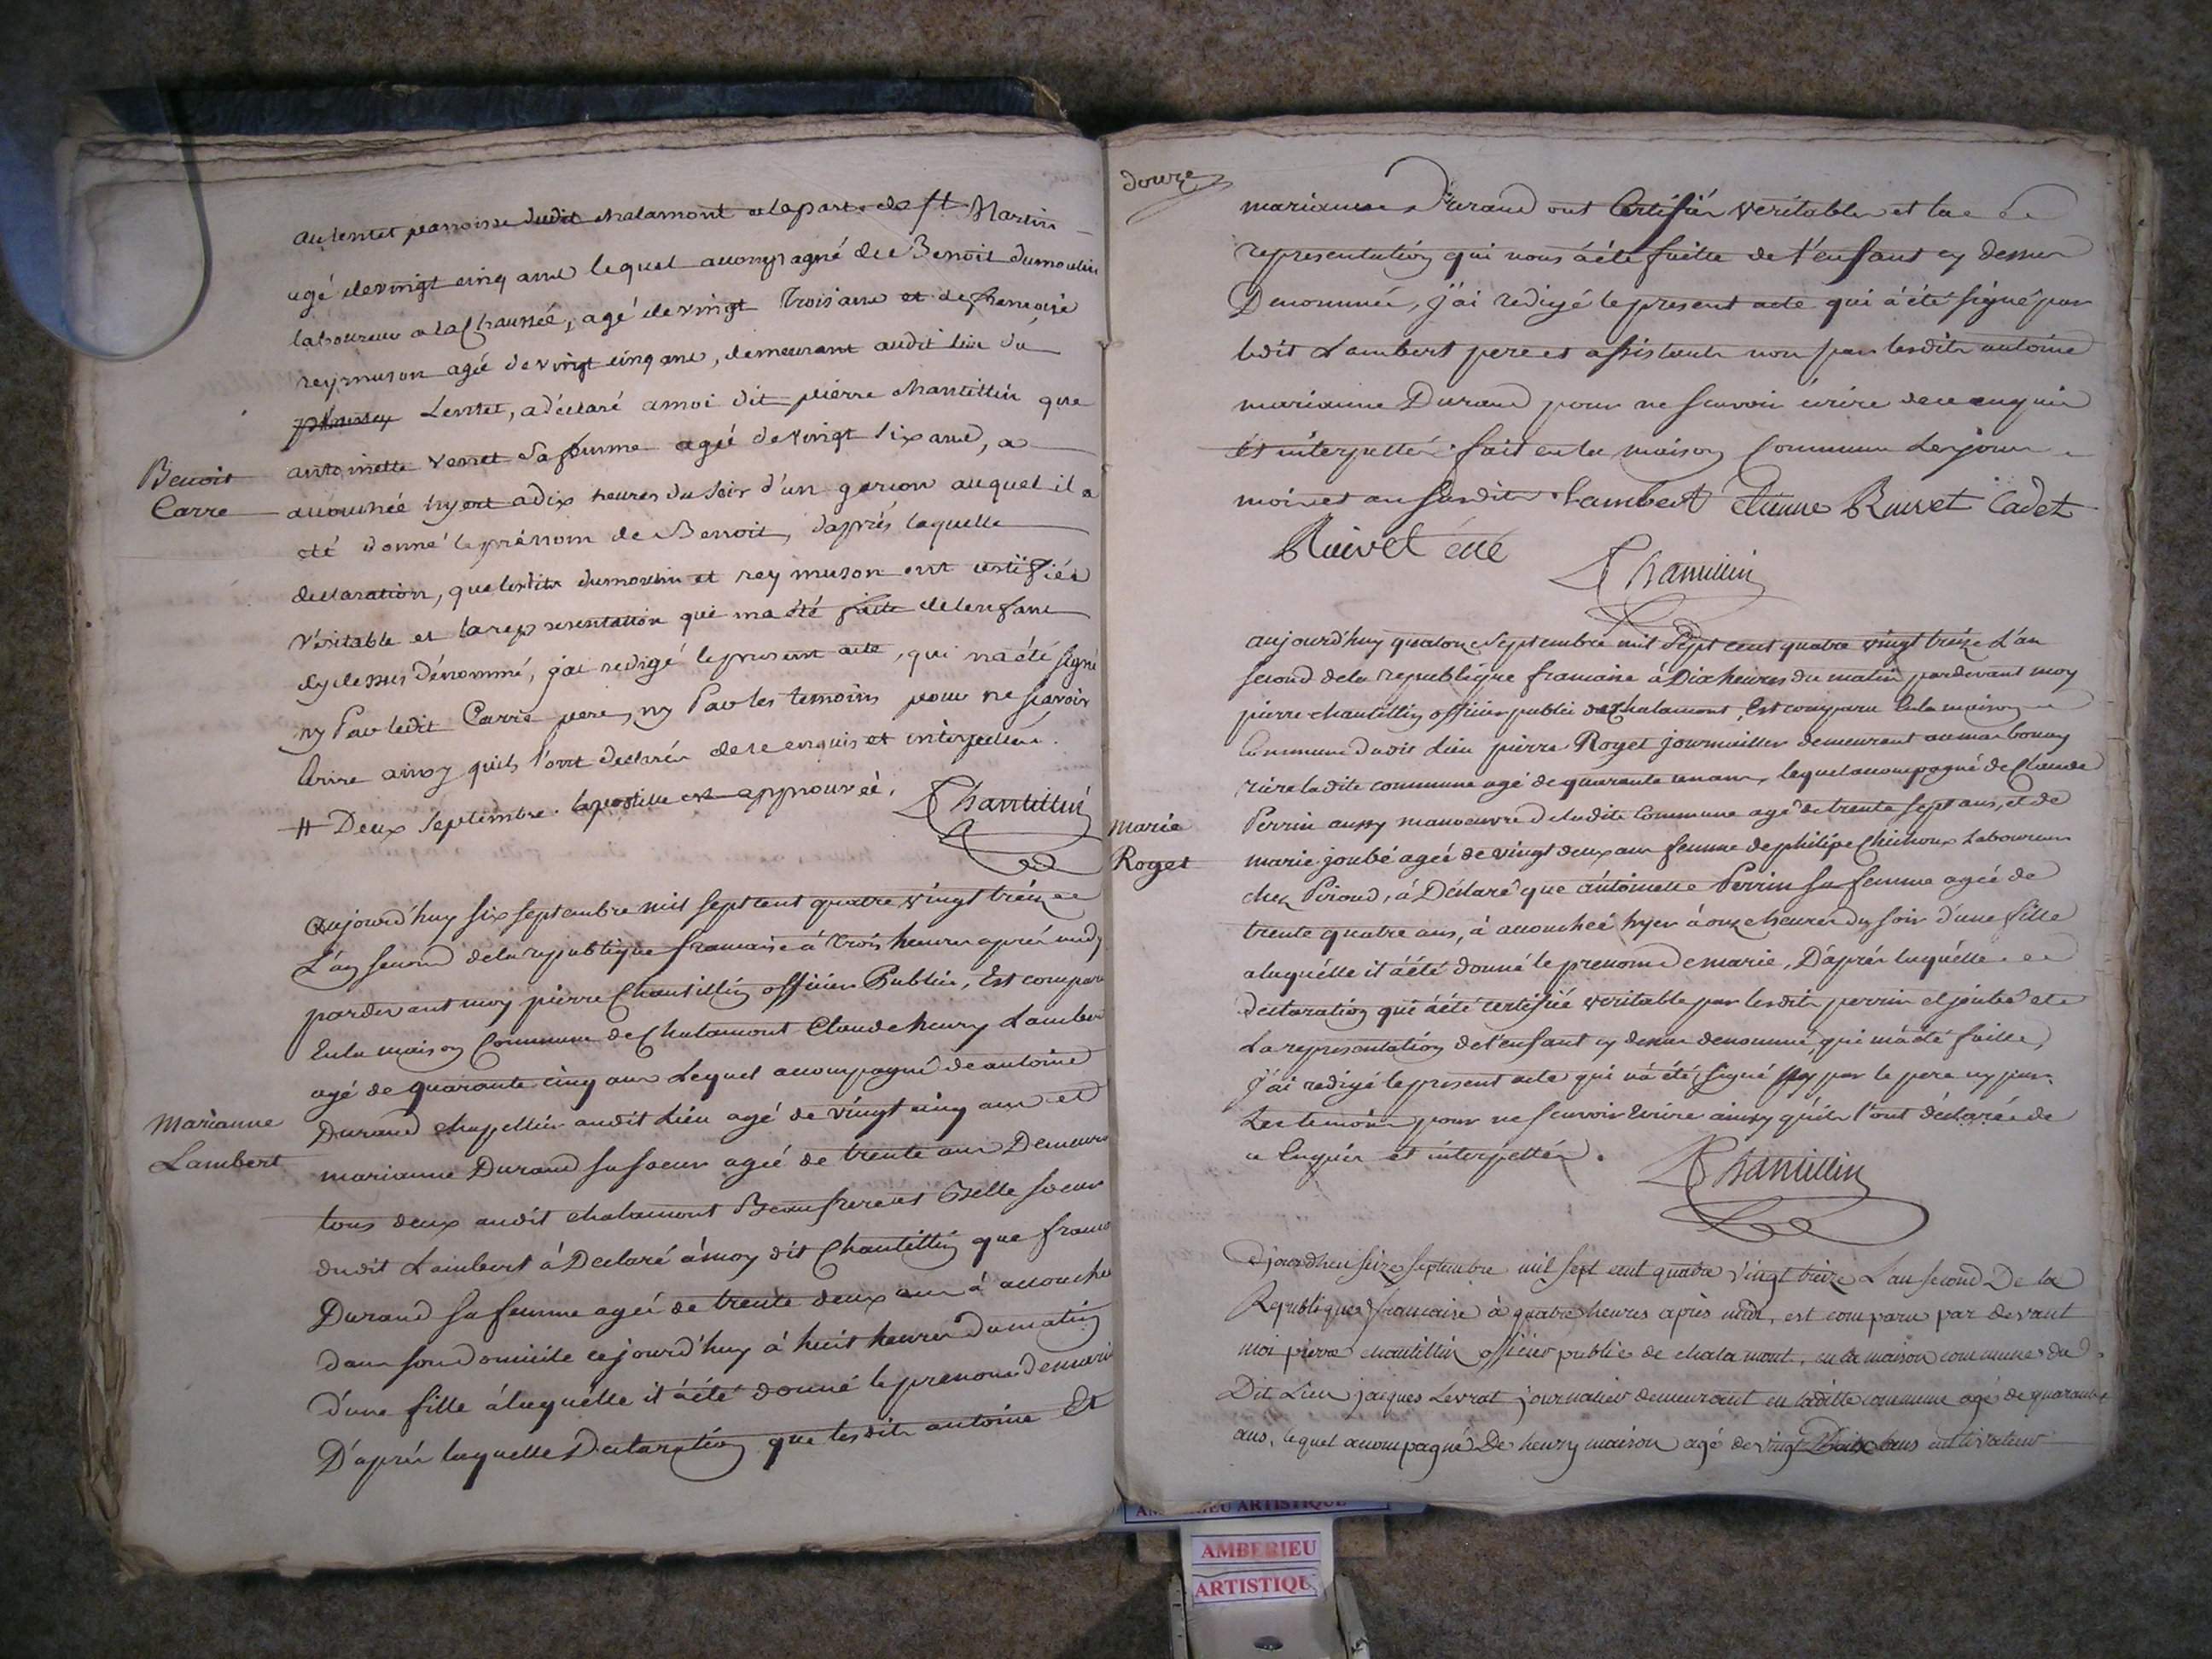 au lentet parroisse dudit chalamont a la part. de St. Martin
agé de vingt cinq ans lequel accompagné de Benoit dumoulin
laboureur a la Chaussée, agé de vingt trois ans et de francoise
rey muson agée de vingt cinq ans, demeurant audit lieu du
Lentet, a déclaré a moi dit pierre chantillin que
antoinette venet sa femme agée de vingt six ans, a
Benoit
Carre
accouchée hyert a dix heures du soir d'un garcon auquel il a
été donné le prénom de Benoit, daprés laquelle
declaration, que lesdits dumoulin et rey muson ont certifiés
véritable et la representation qui ma été faite de lenfant
cy dessus dénommé, jai redigé le present acte, qui na été signé
ny Par ledit Carre pere, ny Par les temoins pour ne sçavoir
Ecrire ainsy quils l'ont declarés de ce enquis et interpellés.
# Deux septembre. lapostille est approuvéé. Chantillin
aujourd'huy six septembre mil sept cent quatre vingt treize
L'an second de la republique francaise à trois heures aprés midy
pardevant moy pierre Chantillin officier Public, Est comparu
En la maison Commune de Chalamont Claude henry Lambert
agé de quarante cinq ans Lequel accompagné de antoine
Durand chapellier audit Lieu agé de vingt cinq ans et
Marianne
Lambert
marianne Durand sa soeur agée de trente ans Demeurant
tous deux audit chalamont Beaufrere et Belle soeur
dudit Lambert à Declaré à moy dit Chantillin que
Durand sa femme agée de trente deux ans à accouché
dans son domicile cejourd'huy à huit heures du matin
d'une fille à laquélle il à été donné le prenom de
D'aprés laquelle Declaration que lesdits antoine Et
douze
marianne Durand ont Certifiés veritable et la
representation qui nous à été faitte de l'enfant cy dessus
Denommée, j'ai redigé le present acte qui à été signé par
ledit Lambert pere et assistants non par lesdits antoine
marianne Durand pour ne scavoir écrire de ce enquis
Et interpellés fait en la maison Commune Les jour
mois et an susdits Lambert Etienne Ruivet Cadet
Ruivet
Chantillin
aujourd'huy quatorze septembre mil sept cent quatre vingt treize L'an
second de la republique francaise à Dix heures du matin pardevant moy
pierre chantillin officier public de Chalamont, Est comparu En la maison
Commune dudit Lieu pierre Roget journaillier demeurant
riere ladite commune agé de quarante un ans, lequel accompagné de Claude
Perrin aussy manoeuvre de ladite Commune agé de trente sept ans, et de
marie
Roget
marie joubé ageé de vingt deux ans femme de philipe Laboureur
chez Piroud, à Déclaré que antoinette Perrin sa femme ageé de
trente quatre ans, à accoucheé hyer à onze heures du soir d'une fille
a laquélle il à été donné le prenom de marie, D'aprés laquélle
déclaration qui à été certifiée veritable par lesdits perrin et joubé et
La representation de l'enfant cy dessus denommé, qui m'a été faitte,
j'ai redigé le present acte qui n'a été signé ny par le pere ny par
Les temoins pour ne scavoir Ecrire ainsy qu'ils l'ont déclarés de
ce Enquis et interpellés. Chantillin
Ajourdhui seize septembre mil sept cent quatre vingt treize L'an second De la
Republique francaise à quatre heures apres midi, est comparu par devant
moi pierre chantillin officier public de chalamont, en la maison commune du
Dit Lieu jacques Levrat journalier demeurant en laditte commune agé de quarante
ans, lequel accompagné De henry maison agé de vingt ans cultivateur
AMBERIEU ARTISTIQUE
AMBERIEU
ARTISTIQU